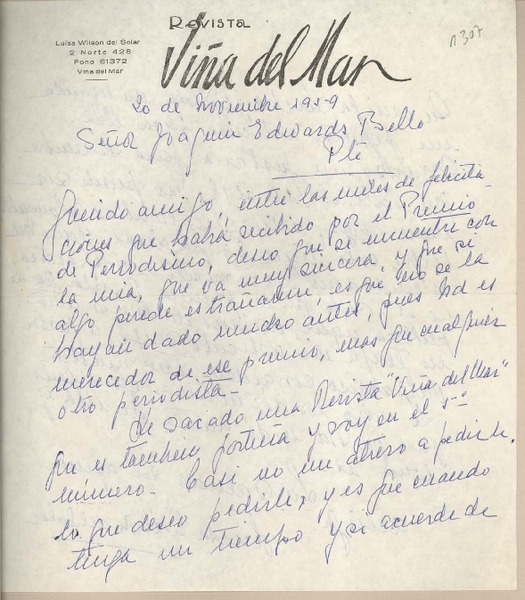 Revista
Viña del Mar
Luisa Wilson del Solar
2 Norte 428
Fono 81372
Viña del Mar
n 307
20 de Noviembre 1959
Señor Joaquín Edwards Bello
Pte
Querido amigo, entre las miles de felicita
ciones que habrá recibido por el Premio
de Periodismo, deseo que se encuentre con
la mia, que va muy sincera, y que si
algo puede extrañarme, es que no se la
hayan dado mucho antes, pues Ud es
merecedor de ese premio, mas que cualquier
otro periodista -
He sacado una Revista "Viña del Mar"
que es tambien porteña y voy en el 5º
número - Casi no me atrevo a pedirle
lo que deseo pedirle, y es que cuando
tenga un tiempo y si acuerde de